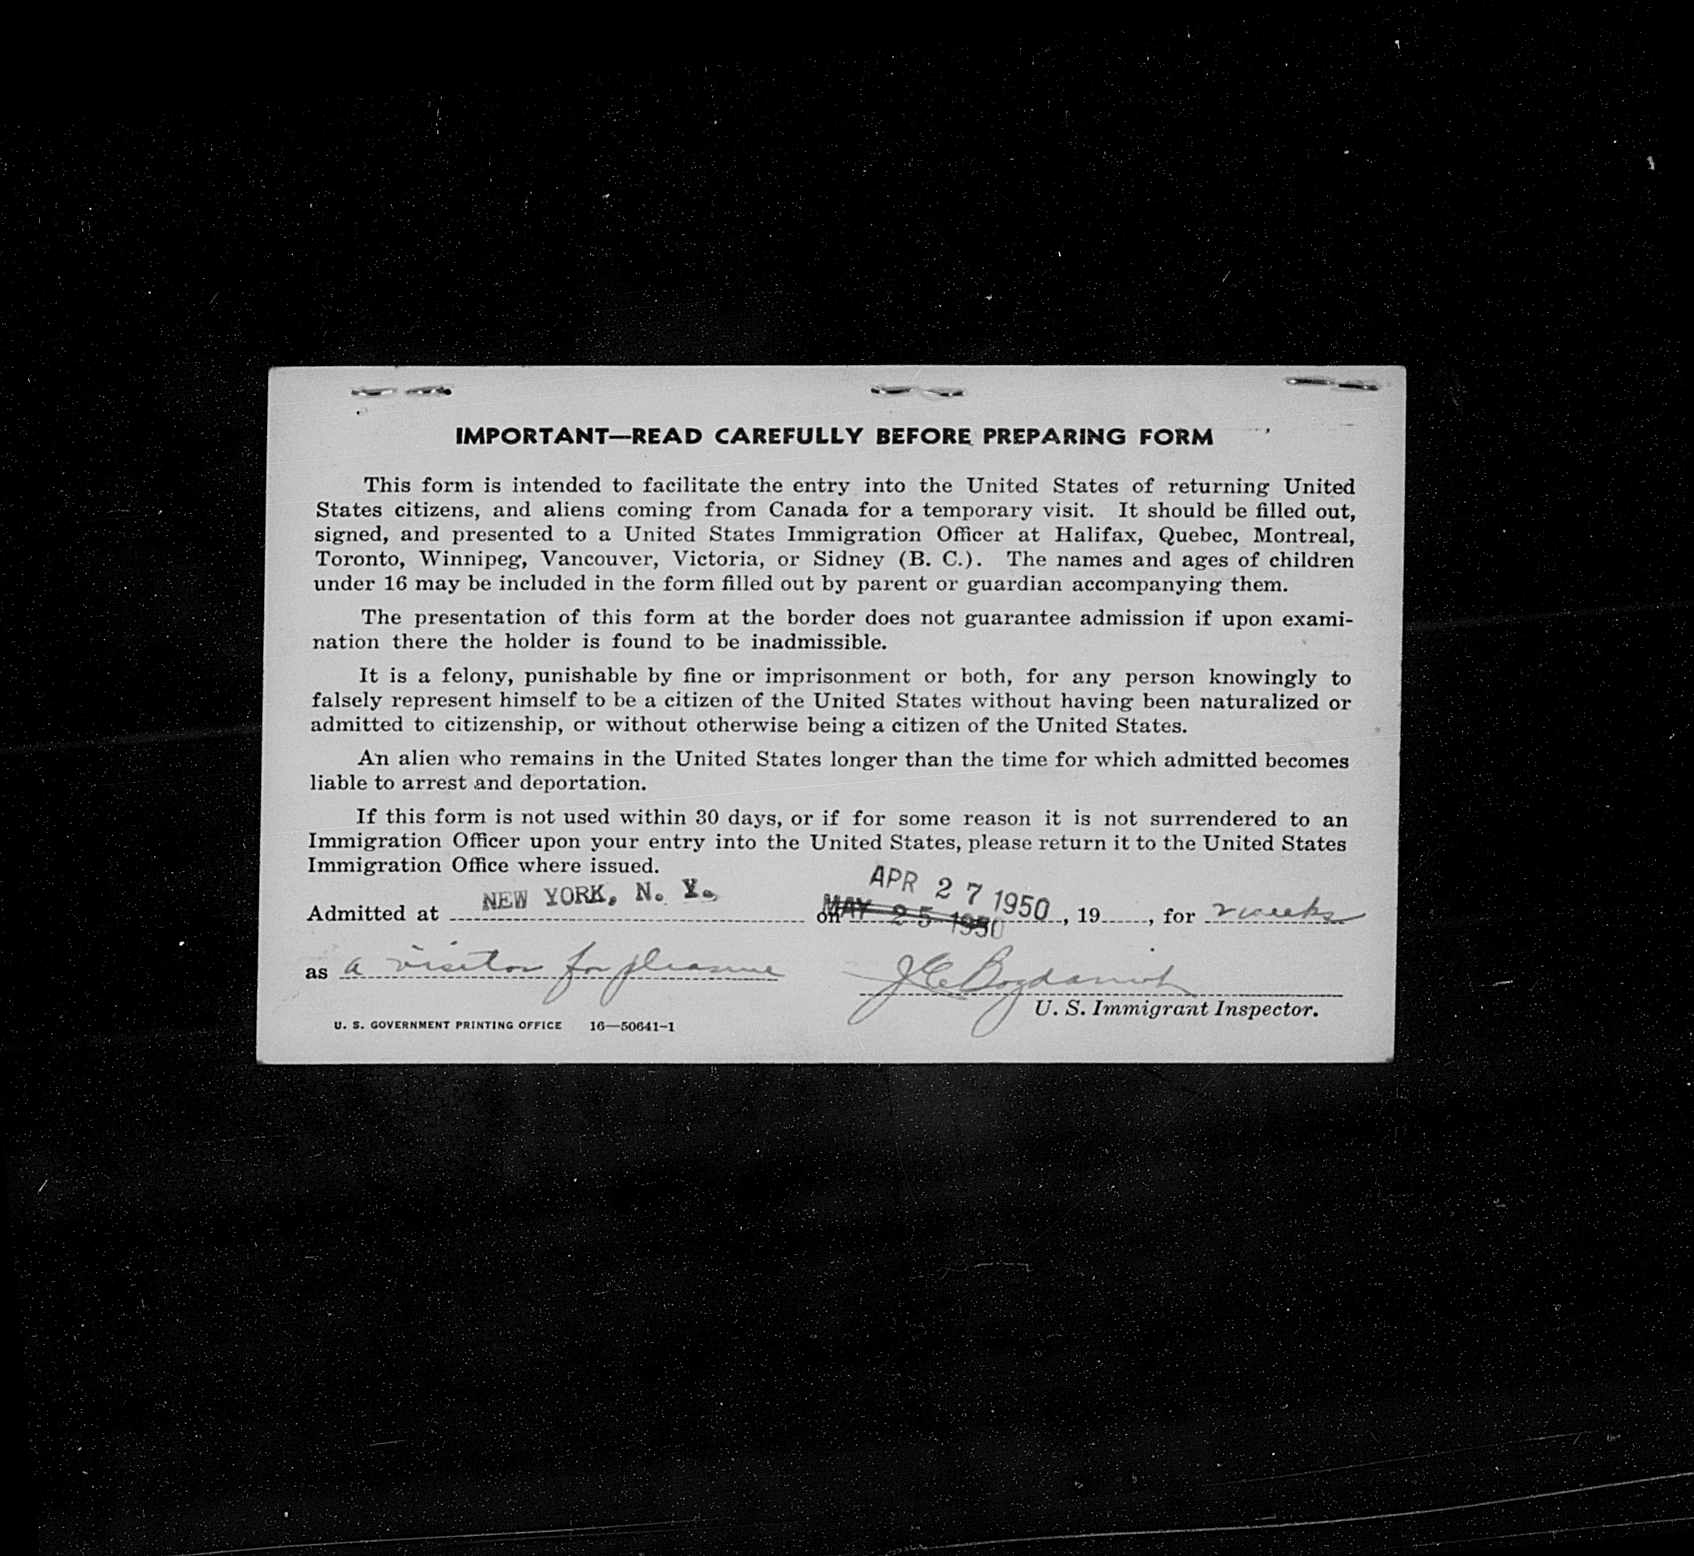 IMPORTANT—READ CAREFULLY BEFORE PREPARING FORM
This form is intended to facilitate the entry into the United States of returning United
States citizens, and aliens coming from Canada for a temporary visit. It should be filled out,
signed, and presented to a United States Immigration Officer at Halifax, Quebec, Montreal,
Toronto, Winnipeg, Vancouver, Victoria, or Sidney (B. C.). The names and ages of children
under 16 may be included in the form filled out by parent or guardian accompanying them.
The presentation of this form at the border does not guarantee admission if upon exami-
nation there the holder is found to be inadmissible.
It is a felony, punishable by fine or imprisonment or both, for any person knowingly to
falsely represent himself to be a citizen of the United States without having been naturalized or
admitted to citizenship, or without otherwise being a citizen of the United States.
An alien who remains in the United States longer than the time for which admitted becomes
liable to arrest and deportation.
If this form is not used within 30 days, or if for some reason it is not surrendered to an
Immigration Officer upon your entry into the United States, please return it to the United States
Immigration Office where issued.
APR 27 1950
Admitted at NEW YORK, N. Y. on MAY 25 1950, 19, for 2 weeks
as a visitor for pleasure
U. S. Immigrant Inspector.
U. S. GOVERNMENT PRINTING OFFICE 16—50641-1